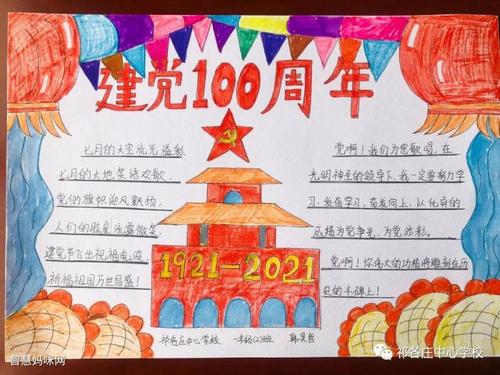 建党100周年
七月的天空流光溢彩
七月的大地笑语欢歌
党的旗帜迎风飘扬
人们的脸庞流露微笑
建党节飞出祝福电波
祈福祖国万世昌盛！
党啊！我们为您歌唱，在
光明神圣的领导下，我一定要努力学
习，发奋学习，奋发向上，以优异的
成绩为党争光，为党添彩。
党啊！你伟大的功绩将雕刻在历
史的丰碑上！
1921-2021
祁各庄中心学校 一年级(2)班
智慧妈咪网
祁各庄中心学校